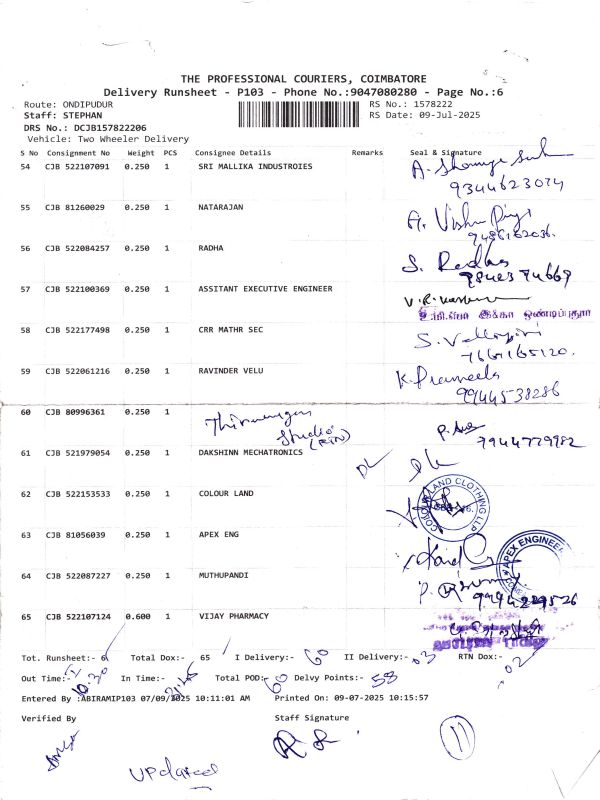 THE PROFESSIONAL COURIERS, COIMBATORE
Delivery Runsheet - P103 - Phone No.:9047080280 - Page No.:6
Route: ONDIPUDUR RS No.: 1578222
Staff: STEPHAN RS Date: 09-Jul-2025
DRS No.: DCJB157822206
Vehicle: Two Wheeler Delivery
S No Consignment No Weight PCS Consignee Details Remarks Seal & Signature
54 CJB 522107091 0.250 1 SRI MALLIKA INDUSTROIES
9344623074
55 CJB 81260029 0.250 1 NATARAJAN A. Vishnu Priya
9486162036.
56 CJB 522084257 0.250 1 RADHA S. Radha
9842374669
57 CJB 522100369 0.250 1 ASSITANT EXECUTIVE ENGINEER
58 CJB 522177498 0.250 1 CRR MATHR SEC
59 CJB 522061216 0.250 1 RAVINDER VELU K. Prameela
9944538286
60 CJB 80996361 0.250 1 Studio
7944779982
61 CJB 521979054 0.250 1 DAKSHINN MECHATRONICS DL
62 CJB 522153533 0.250 1 COLOUR LAND COLOUR LAND CLOTHING LLP
63 CJB 81056039 0.250 1 APEX ENG APEX ENGINEE
64 CJB 522087227 0.250 1 MUTHUPANDI
65 CJB 522107124 0.600 1 VIJAY PHARMACY
Tot. Runsheet:- 6 Total Dox:- 65 I Delivery:- 60 II Delivery:- 03 RTN Dox:- 02
Out Time:- 10.30 In Time:- Total POD:- 60 Delvy Points:- 58
Entered By :ABIRAMIP103 07/09/2025 10:11:01 AM Printed On: 09-07-2025 10:15:57
Verified By Staff Signature
Updated
11